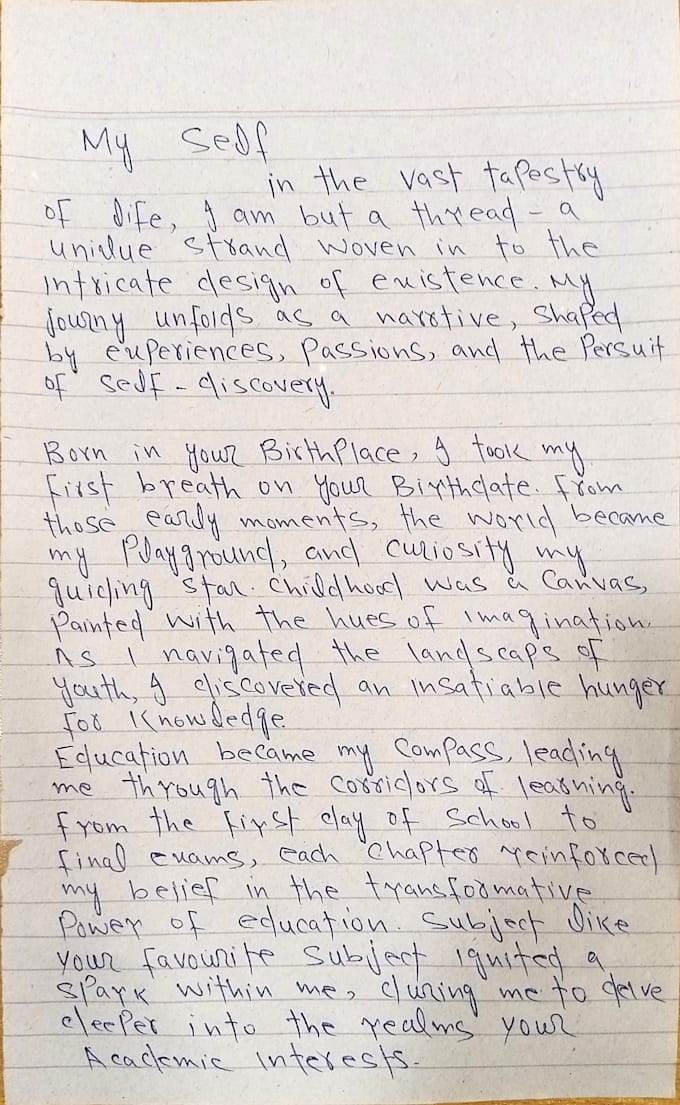 My Self
in the vast tapestry
of life, I am but a thread - a
uniqlue strand woven in to the
intricate design of existence. My
journy unfolds as a narrtive, shaped
by experiences, Passions, and the Persuit
of self - discovery.
Born in your BirthPlace, I took my
first breath on your Birthdate. From
those early moments, the world became
my Playground, and curiosity my
guiding star. childhood was a Canvas,
Painted with the hues of imagination.
As I navigated the landscaps of
youth, I discovered an insatiable hunger
for Knowledge.
Education became my Compass, leading
me through the corridors of learning.
from the first day of School to
final exams, each Chapter reinforced
my belief in the transformative
Power of education. Subject like
your favourite Subject ignited a
spark within me, luring me to delve
deeper into the realms your
Academic Interests.